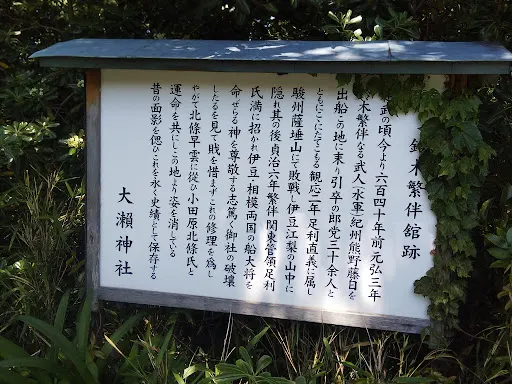 鈴木繁伴舘跡
武の頃今より六百四十年前元弘三年
木繁伴なる武人(水軍)紀州熊野藤日を
出船この地に来り引卒の郎党三十余人と
ともにこゝにたてこもる観応二年足利直義に属し
駿州薩埵山にて敗戦し伊豆江梨の山中に
隠れ其の後貞治六年繁伴関東管領足利
氏満に招かれ伊豆相模両国の船大将を
命ぜらる神を尊敬する志篤く御社の破壊
したるを見て賎を惜まずこれの修理を為し
やがて北條早雲に従ひ小田原北條氏と
運命を共にしこの地より姿を消している
昔の面影を偲ひこれを永く史績として保存する
大瀬神社